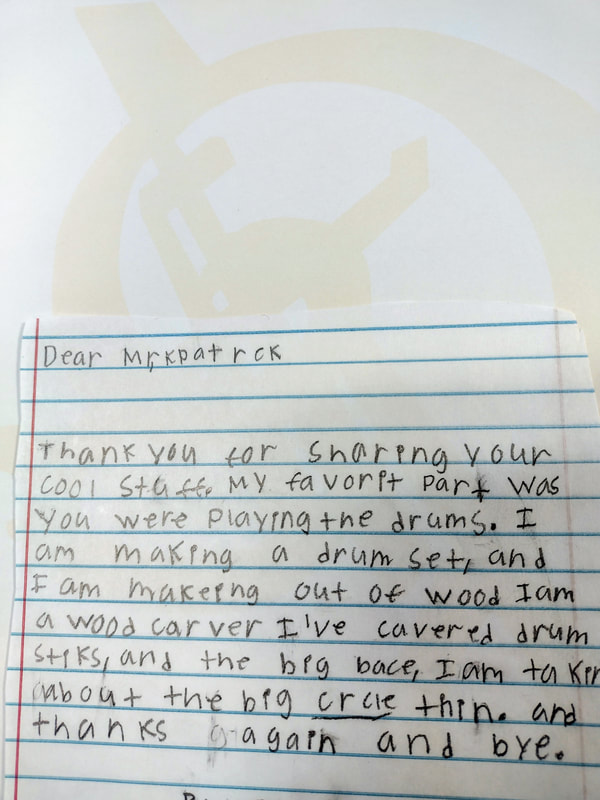 Dear Mr,kpatrck
Thank you for sharing your
cool stuff. My favorit part was
you were playing the drums. I
am making a drum set, and
I am makeing out of wood I am
a wood carver I've cavered drum
stiks, and the big bace, I am takin
about the big crcle thin. and
thanks again and bye.